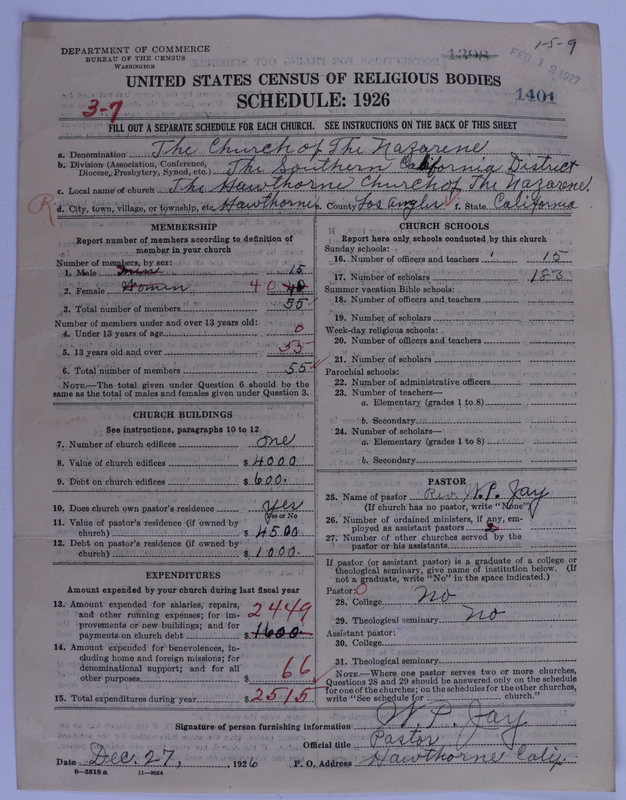 DEPARTMENT OF COMMERCE
BUREAU OF THE CENSUS
WASHINGTON
1398
FEB 12 1927
1-5-9
1401
UNITED STATES CENSUS OF RELIGIOUS BODIES
SCHEDULE: 1926
3-7
FILL OUT A SEPARATE SCHEDULE FOR EACH CHURCH. SEE INSTRUCTIONS ON THE BACK OF THIS SHEET
a. Denomination The Church of The Nazarene
b. Division (Association, Conference, Diocese, Presbytery, Synod, etc.) The Southern California District
c. Local name of church The Hawthorne Church of The Nazarene
R d. City, town, village, or township, etc. Hawthorne e. County Los Angles f. State California
MEMBERSHIP
Report number of members according to definition of
member in your church
Number of members, by sex:
1. Male Men 15
2. Female Women 40 40
3. Total number of members 55
Number of members under and over 13 years old:
4. Under 13 years of age 0
5. 13 years old and over 55
6. Total number of members 55
NOTE.—The total given under Question 6 should be the
same as the total of males and females given under Question 3.
CHURCH BUILDINGS
See instructions, paragraphs 10 to 12
7. Number of church edifices one
8. Value of church edifices $ 4000
9. Debt on church edifices $ 600.
10. Does church own pastor's residence yes
(Yes or No)
11. Value of pastor's residence (if owned by
church) $ 4500
12. Debt on pastor's residence (if owned by
church) $ 1000.
EXPENDITURES
Amount expended by your church during last fiscal year
13. Amount expended for salaries, repairs,
and other running expenses; for im-
provements or new buildings; and for
payments on church debt $ 2449 1600.
14. Amount expended for benevolences, in-
cluding home and foreign missions; for
denominational support; and for all
other purposes $ 66
15. Total expenditures during year $ 2515
CHURCH SCHOOLS
Report here only schools conducted by this church
Sunday schools:
16. Number of officers and teachers 15
17. Number of scholars 183
Summer vacation Bible schools:
18. Number of officers and teachers
19. Number of scholars
Week-day religious schools:
20. Number of officers and teachers
21. Number of scholars
Parochial schools:
22. Number of administrative officers
23. Number of teachers—
a. Elementary (grades 1 to 8)
b. Secondary
24. Number of scholars—
a. Elementary (grades 1 to 8)
b. Secondary
PASTOR
25. Name of pastor Rev. W. P. Jay
(If church has no pastor, write "None")
26. Number of ordained ministers, if any, em-
ployed as assistant pastors
27. Number of other churches served by the
pastor or his assistants
If pastor (or assistant pastor) is a graduate of a college or
theological seminary, give name of institution below. (If
not a graduate, write "No" in the space indicated.)
Pastor: 0
28. College No
29. Theological seminary No
Assistant pastor:
30. College
31. Theological seminary
NOTE.—Where one pastor serves two or more churches,
Questions 28 and 29 should be answered only on the schedule
for one of the churches; on the schedules for the other churches,
write "See schedule for church."
Signature of person furnishing information W. P. Jay
Official title Pastor
Date Dec. 27, 1926 P. O. Address Hawthorne Calif.
8—5518a 11—9054